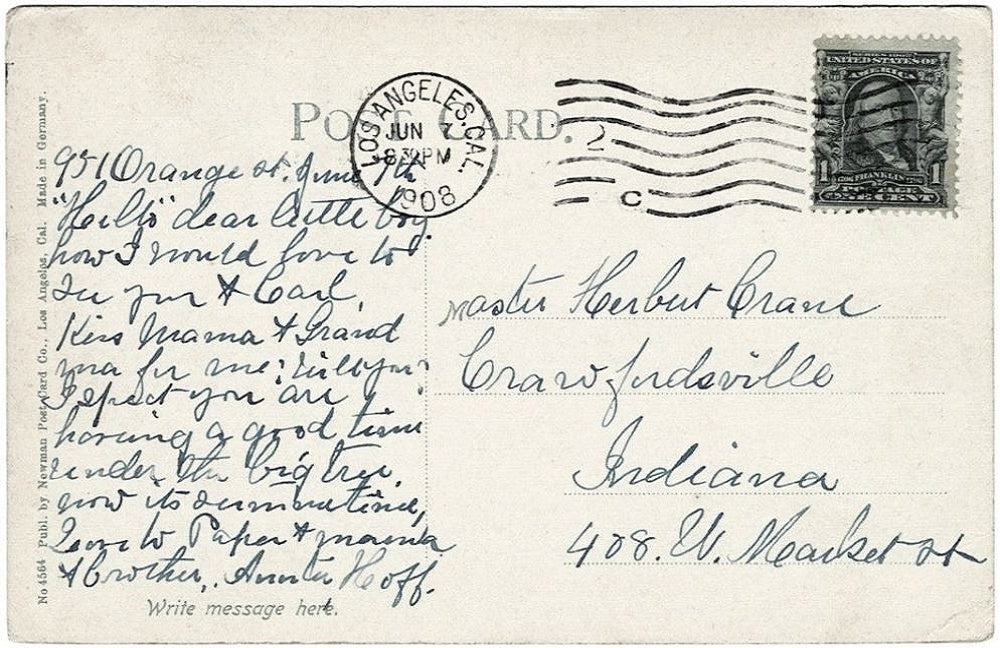 POST CARD.
LOS ANGELES, CAL.
JUN 7
8 30 PM
1908
2
C
SERIES 1902
UNITED STATES OF
AMERICA
1 FRANKLIN 1
POSTAGE
ONE CENT
951 Orange st. June 7th
"Hello" dear little boy
how I would love to
see you & Carl,
Kiss Mama & Grand
ma for me; will you?
I spect you are
having a good time
under the big tree
now its summertime,
Love to Papa & mama
& brother, Auntie Hoff.
Write message here.
Master Herbert Crane
Crawfordsville
Indiana
408. W. Market st
No 4564 Publ. by Newman Post Card Co., Los Angeles, Cal. Made in Germany.